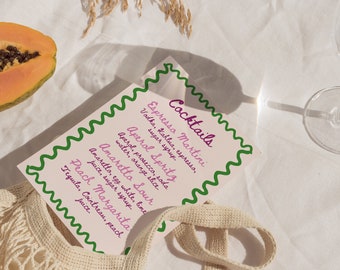 Cocktails
Espresso Martini
Vodka, Coffee, espresso,
sugar syrup
Aperol Spritz
Aperol, prosecco, soda
water, orange slice
Amaretto Sour
Amaretto, egg white, lemon
juice, sugar syrup
Peach Margarita
Tequila, Cointreau, peach
juice